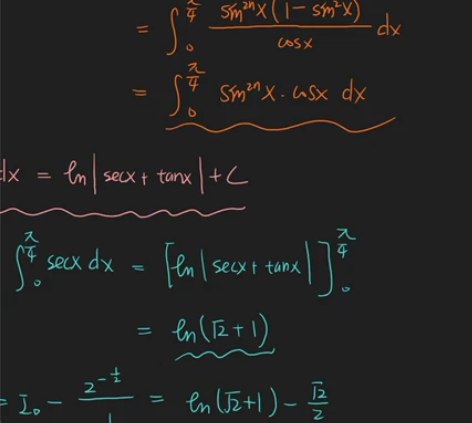 = ∫₀^{π/4} sin²ⁿx(1-sin²x)/cosx dx
= ∫₀^{π/4} sin²ⁿx · cosx dx
dx = ln|secx + tanx| + C
∫₀^{π/4} secx dx = [ln|secx + tanx|]₀^{π/4}
= ln(√2 + 1)
= I₀ - 2^{-1/2}/1 = ln(√2+1) - √2/2